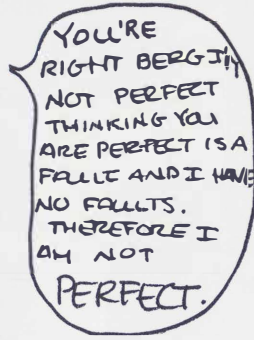 YOU'RE
RIGHT BERG I'M
NOT PERFECT
THINKING YOU
ARE PERFECT IS A
FAULT AND I HAVE
NO FAULTS.
THEREFORE I
AM NOT
PERFECT.